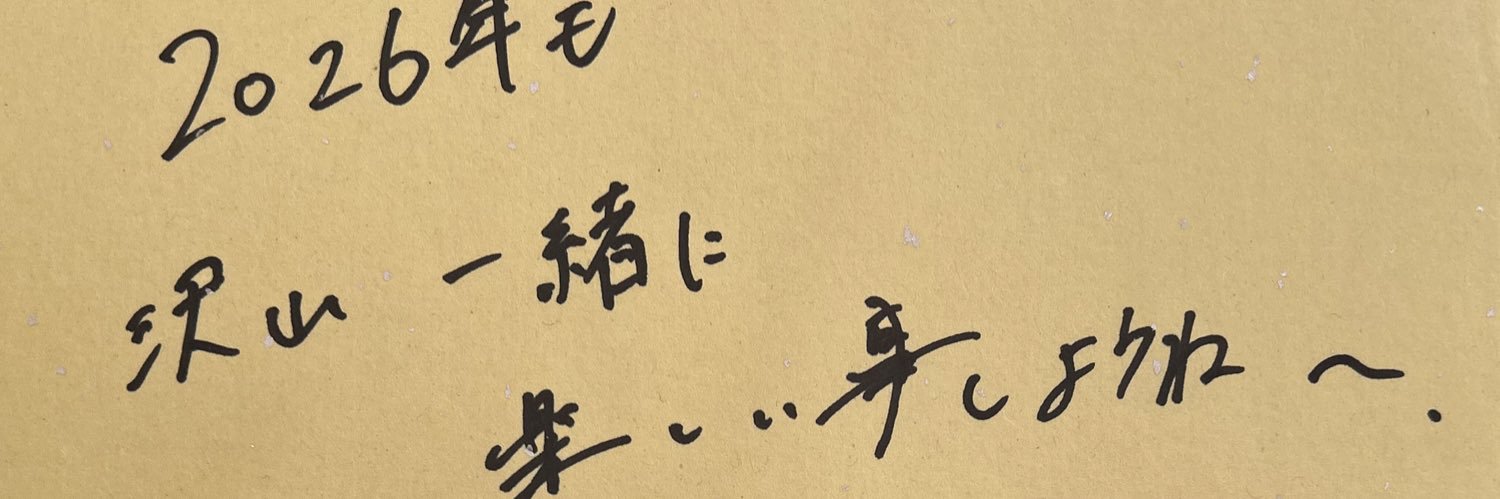 2026年も
沢山一緒に
楽しい事しようね〜.